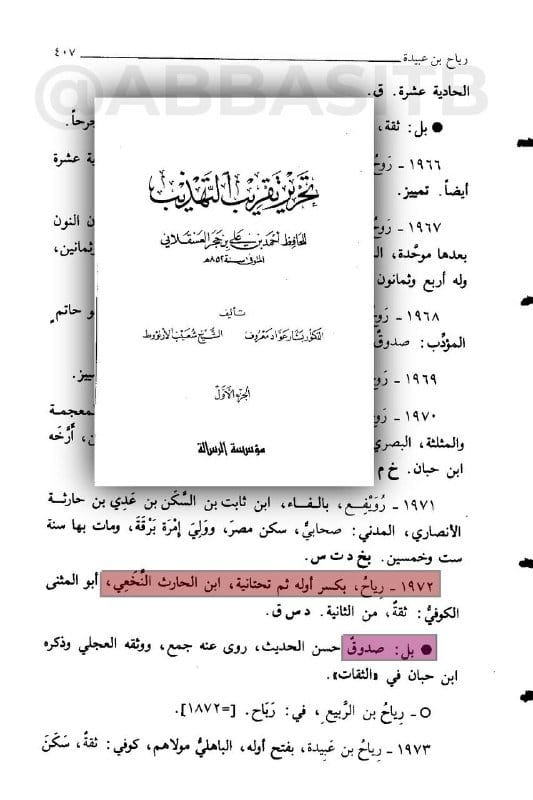 رياح بن عبيدة ٤٠٧
@ABBASITB
الحادية عشرة. ق.
● بل: ثقة، جرحاً.
١٩٦٦ - رَوح ية عشرة
أيضاً. تمييز.
١٩٦٧ - رَوح ن النون
بعدها موحَّدة، ال ثمانين،
وله أربع وثمانون
١٩٦٨ - رَوح و حاتم
المؤدِّب: صدوق
١٩٦٩ - رَوح ييز.
١٩٧٠ - رَوح لمعجمة
والمثلثة، البصري ن، أرَّخه
ابن حبان. خ م
تحرير تقريب التهذيب
للحافظ أحمد بن علي بن حجر العسقلاني
المتوفى سنة ٨٥٢ هـ
تأليف
الدكتور بشار عواد معروف الشيخ شعيب الأرنؤوط
الجزء الأول
مؤسسة الرسالة
١٩٧١ - رُوَيْفِع، بالفاء، ابن ثابت بن السَّكَن بن عَدِي بن حارثة
الأنصاري، المدني: صحابيٌّ، سكن مصرَ، ووَلِيَ إمْرَةَ بَرْقَةَ، ومات بها سنة
ست وخمسين. بخ د ت س.
١٩٧٢ - رِياحُ، بكسر أوله ثم تحتانية، ابن الحارث النَّخَعِي، أبو المثنى
الكوفيُّ: ثقةٌ، من الثانية. د س ق.
● بل: صدوقٌ حسن الحديث، روى عنه جمع، ووثقه العجلي وذكره
ابن حبان في «الثقات».
○ - رِياحُ بن الرَّبيع، في: رَبَاح. [=١٨٧٢].
١٩٧٣ - رِياحُ بن عَبِيدة، بفتح أوله، الباهليُّ مولاهم، كوفي: ثقةٌ، سَكَنَ